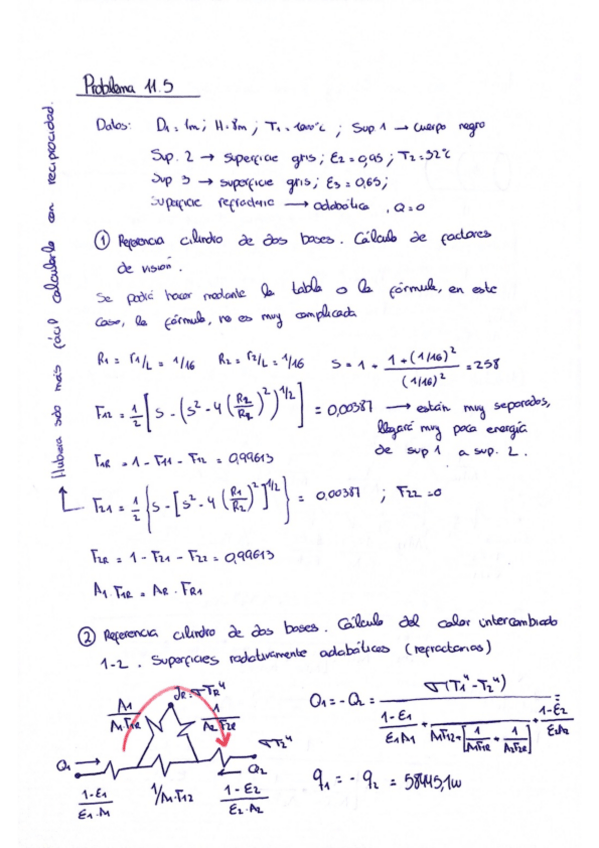 Problema 11.5
Datos: D1 = 1m ; H = 8m ; T1 = 1000°C ; Sup 1 → cuerpo negro
Sup. 2 → superficie gris ; ε2 = 0,95 ; T2 = 32°C
Sup 3 → superficie gris ; ε3 = 0,65 ;
Superficie refractaria → adiabática , Q = 0
① Referencia cilindro de dos bases. Cálculo de factores
de visión.
Se podrá hacer mediante la tabla o la fórmula, en este
caso, la fórmula, no es muy complicada
R1 = r1/L = 1/16 R2 = r2/L = 1/16 S = 1 + (1 + (1/16)²)/(1/16)² = 258
F12 = 1/2 [S - (S² - 4 (R2/R1)²)^1/2] = 0,00387 → están muy separados,
llegará muy poca energía
de sup 1 a sup. 2.
F1R = 1 - F11 - F12 = 0,99613
F21 = 1/2 {S - [S² - 4 (R1/R2)²]^1/2} = 0,00387 ; F22 = 0
F2R = 1 - F21 - F22 = 0,99613
A1 F1R = AR · FR1
Hubiera sido más fácil calcularla con reciprocidad.
② Referencia cilindro de dos bases. Cálculo del calor intercambiado
1-2 . Superficies radiativamente adiabáticas (refractarias)
JR = σTR⁴
1/A1F1R 1/A2F2R
σT2⁴
Q1 → ← Q2
1-ε1/ε1·A1 1/A1·F12 1-ε2/ε2·A2
Q1 = - Q2 = σ(T1⁴ - T2⁴) / (1-ε1/ε1A1 + 1/A1F12 + [1/A1F1R + 1/A2F2R] + 1-ε2/ε2A2) =
q1 = - q2 = 58445,1w